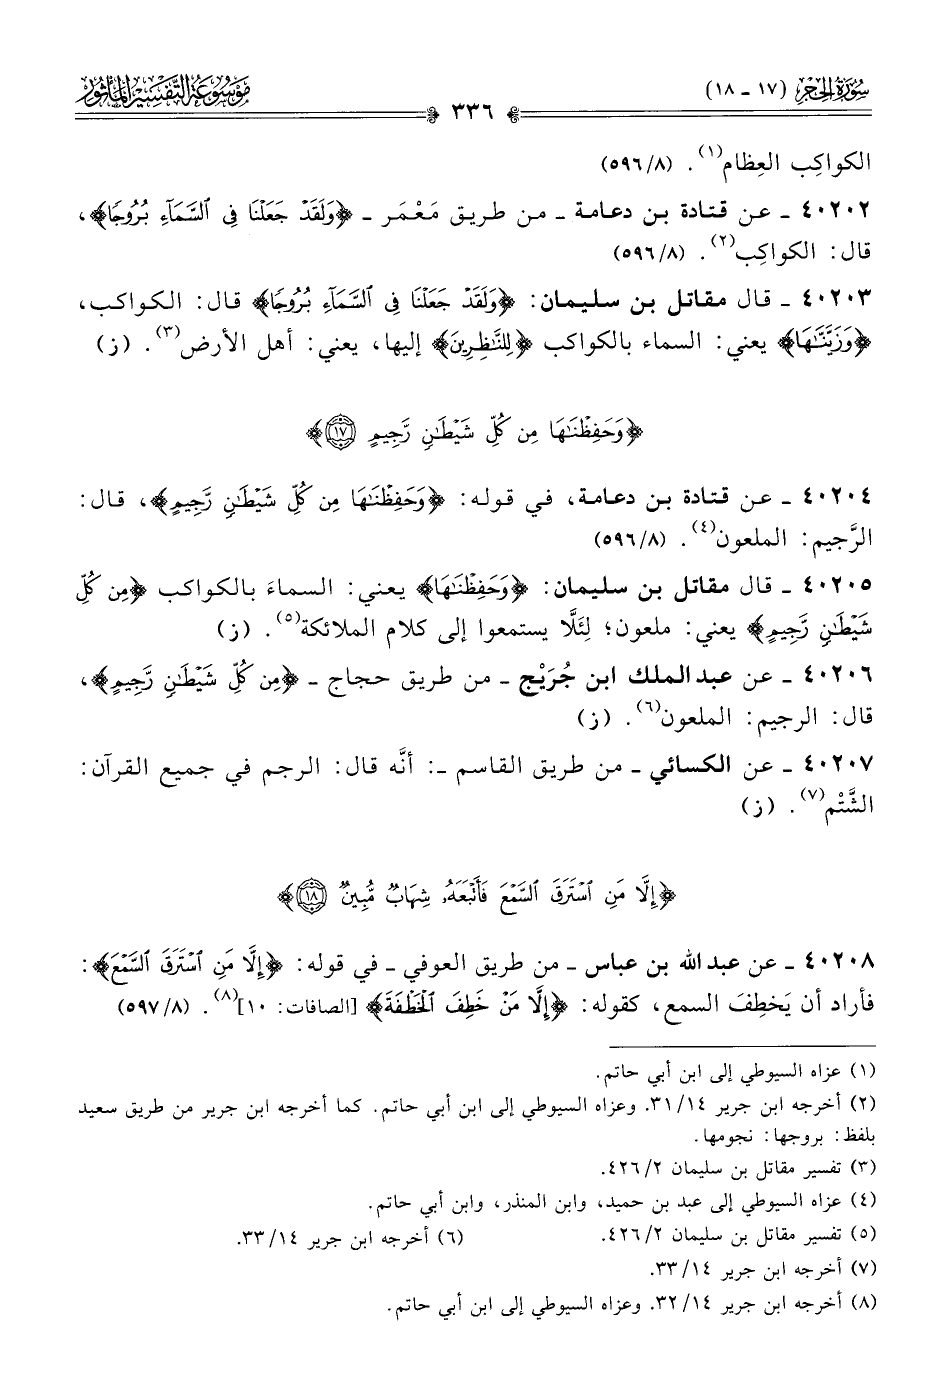 سُورَةُ الحِجْرِ (١٧ - ١٨)
مَوْسُوعَةُ التَّفْسِيرِ المَأْثُورِ
٣٣٦
الكواكِب العِظام(١). (٥٩٦/٨)
٤٠٢٠٢ - عن قتادة بن دعامة - من طريق مَعْمَر - ﴿وَلَقَدْ جَعَلْنَا فِي ٱلسَّمَآءِ بُرُوجًا﴾،
قال: الكواكِب(٢). (٥٩٦/٨)
٤٠٢٠٣ - قال مقاتل بن سليمان: ﴿وَلَقَدْ جَعَلْنَا فِي ٱلسَّمَآءِ بُرُوجًا﴾ قال: الكواكب،
﴿وَزَيَّنَّـٰهَا﴾ يعني: السماء بالكواكب ﴿لِلنَّـٰظِرِينَ﴾ إليها، يعني: أهل الأرض(٣). (ز)
﴿وَحَفِظْنَـٰهَا مِن كُلِّ شَيْطَـٰنٍ رَّجِيمٍ ١٧﴾
٤٠٢٠٤ - عن قتادة بن دعامة، في قوله: ﴿وَحَفِظْنَـٰهَا مِن كُلِّ شَيْطَـٰنٍ رَّجِيمٍ﴾، قال:
الرَّجيم: الملعون(٤). (٥٩٦/٨)
٤٠٢٠٥ - قال مقاتل بن سليمان: ﴿وَحَفِظْنَـٰهَا﴾ يعني: السماءَ بالكواكب ﴿مِن كُلِّ
شَيْطَـٰنٍ رَّجِيمٍ﴾ يعني: ملعون؛ لِئَلَّا يستمعوا إلى كلام الملائكة(٥). (ز)
٤٠٢٠٦ - عن عبد الملك ابن جُرَيْج - من طريق حجاج - ﴿مِن كُلِّ شَيْطَـٰنٍ رَّجِيمٍ﴾،
قال: الرجيم: الملعون(٦). (ز)
٤٠٢٠٧ - عن الكسائي - من طريق القاسم -: أنَّه قال: الرجم في جميع القرآن:
الشَّتْم(٧). (ز)
﴿إِلَّا مَنِ ٱسْتَرَقَ ٱلسَّمْعَ فَأَتْبَعَهُۥ شِهَابٌ مُّبِينٌ ١٨﴾
٤٠٢٠٨ - عن عبد الله بن عباس - من طريق العوفي - في قوله: ﴿إِلَّا مَنِ ٱسْتَرَقَ ٱلسَّمْعَ﴾:
فأراد أن يَخطِفَ السمع، كقوله: ﴿إِلَّا مَنْ خَطِفَ ٱلْخَطْفَةَ﴾ [الصافات: ١٠](٨). (٥٩٧/٨)
(١) عزاه السيوطي إلى ابن أبي حاتم.
(٢) أخرجه ابن جرير ٣١/١٤. وعزاه السيوطي إلى ابن أبي حاتم. كما أخرجه ابن جرير من طريق سعيد
بلفظ: بروجها: نجومها.
(٣) تفسير مقاتل بن سليمان ٤٢٦/٢.
(٤) عزاه السيوطي إلى عبد بن حميد، وابن المنذر، وابن أبي حاتم.
(٥) تفسير مقاتل بن سليمان ٤٢٦/٢. (٦) أخرجه ابن جرير ٣٣/١٤.
(٧) أخرجه ابن جرير ٣٣/١٤.
(٨) أخرجه ابن جرير ٣٢/١٤. وعزاه السيوطي إلى ابن أبي حاتم.